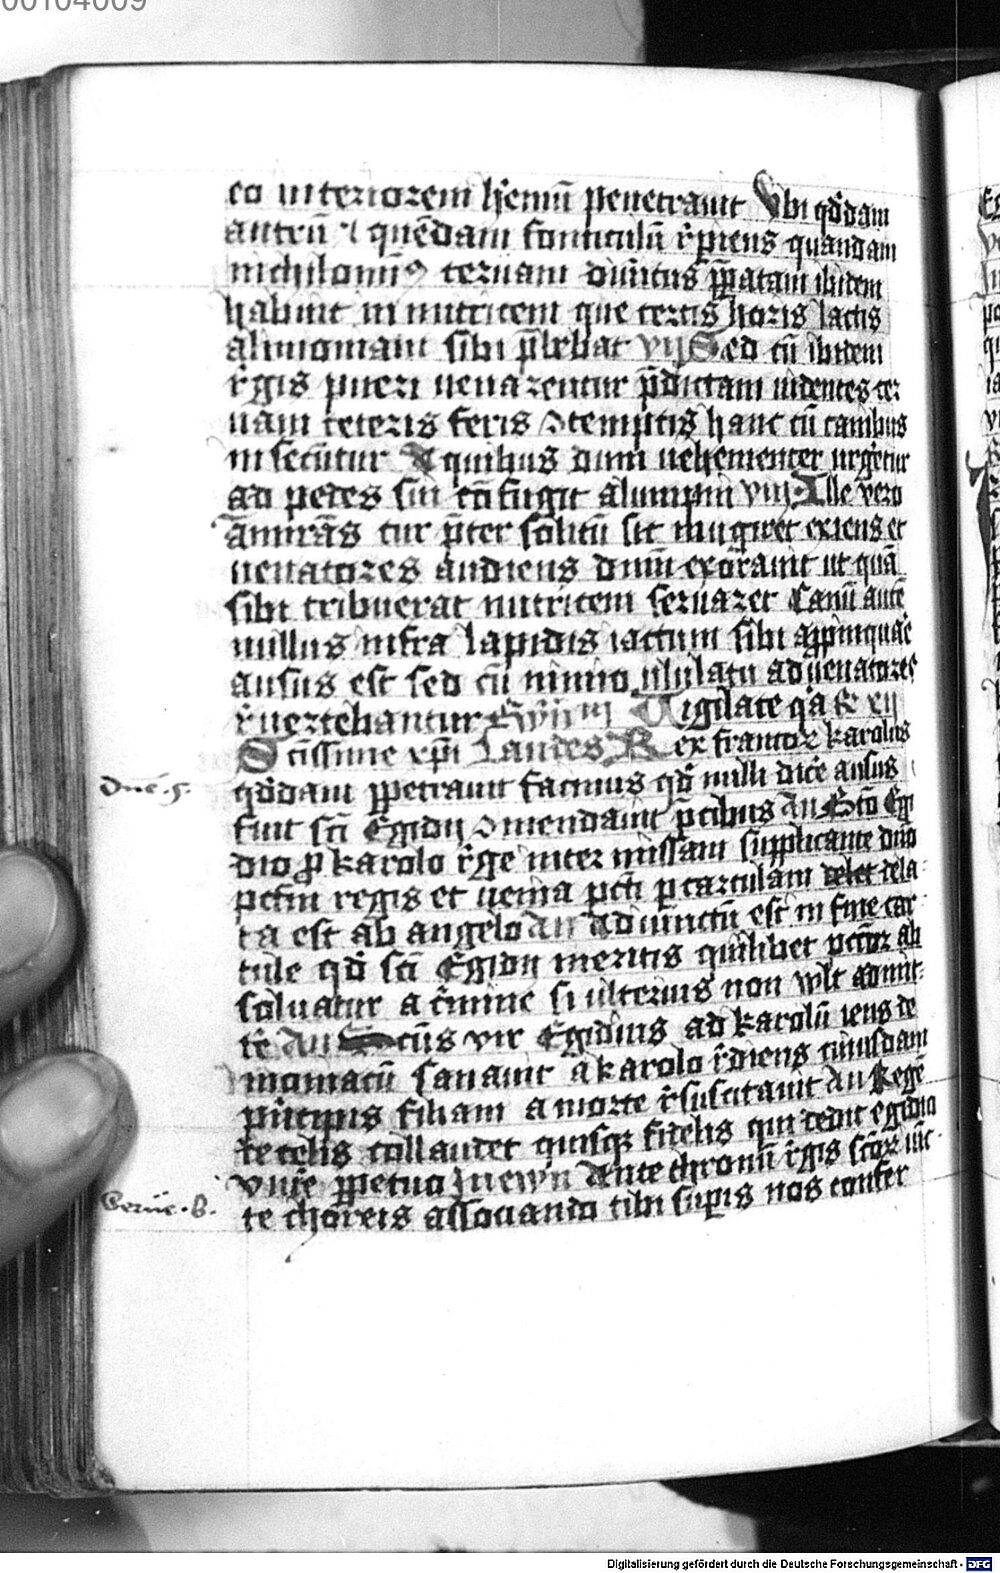 00104009
eo interiorem h'emū penetrauit Vbi qd̄dam
antrū ⁊ quēdam fonticulū r'piens quandam
nichilomīꝯ ceruam diuītus p̄patam ibidem
habuit in nutricem que certis horis lactis
alimoniam sibi p̄bebat vij Sed cū ibidem
r'gis pueri uenarentur p̄dictam uidentes cer
uam ceteris feris ꝯtemptis hanc cū canibus
insecūtur A quibus dum uehementer urgetur
ad pedes sui cōfugit alumpni viij Ille vero
āmirās cur p̄ter solitū sic mugiret exiens et
uenatores audiens dnm̄ exorauit ut quā
sibi tribuerat nutricem seruaret Canū autē
nullus infra lapidis iactum sibi app̄inquar'e
ausus est sed cū nimio ululatu ad uenatores
r'uertebantur Vigilate q'a xij
Sctissime xp̄i Laudes Rex francoꝝ karolus
Dn̄e. 5.
qd̄dam ꝑpetrauit facinus qd̄ nulli dicē ausus
fuit sci Egidij ꝯmendauit p̄cibus An Scō Egi
dio ꝓ karolo r'ge inter missam supplicante dn̄o
pctm̄ regis et uenia pcti ꝑ cartulam dela
ta est ab angelo An Adiunctū est in fine car
tule qd̄ sci Egidij meritis quilibet pctōr ab
soluatur a c'mine si ulterius non wlt admit-
te' An scūs vir Egidius ad karolū iens de
moniacū sanauit a karolo r'diens cuiusdam
pn̄cipis filiam a morte r'suscitauit An Regē
de celis collaudet quisqꝫ fidelis qui dedit egidio
viue' ꝑpetuo In ewn̄ Ante thronū r'gis scōꝝ iūc
te choreis associando tibi suꝑis nos confer
Digitalisierung gefördert durch die Deutsche Forschungsgemeinschaft - DFG